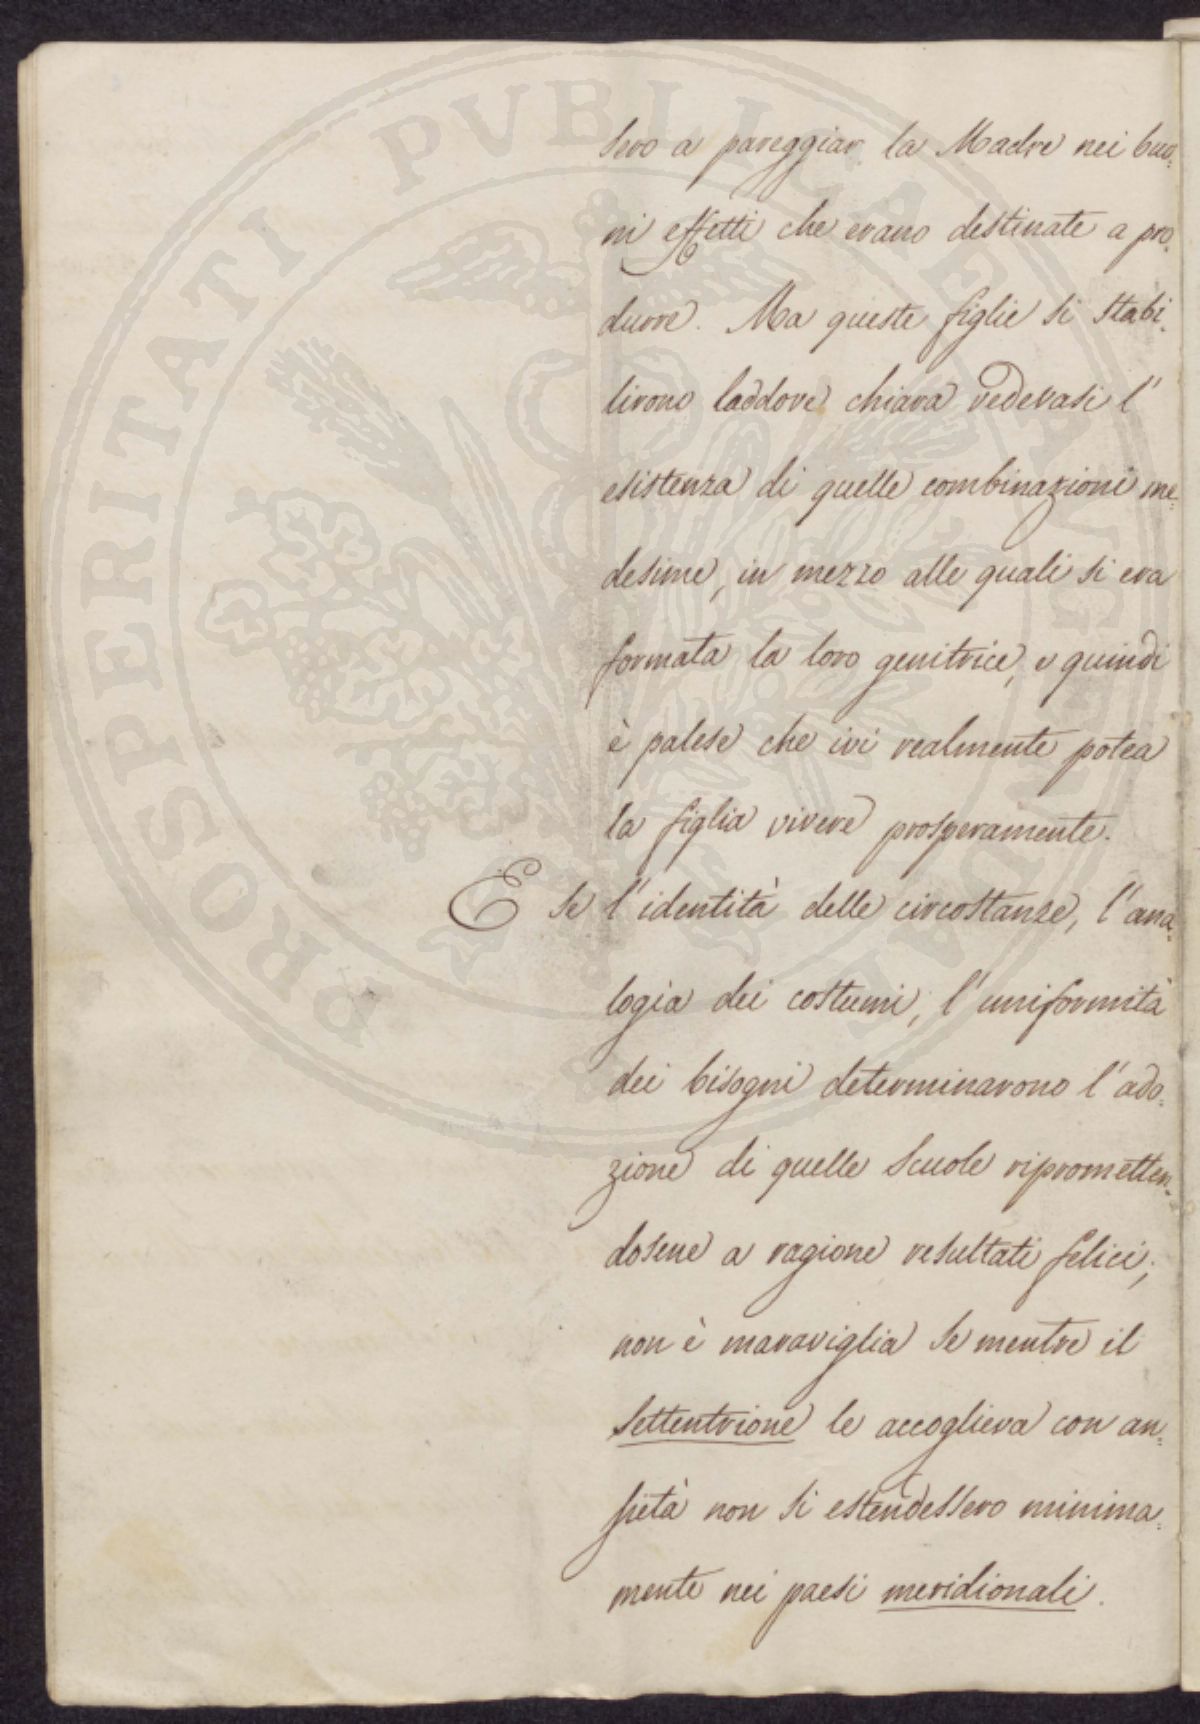 sero a pareggiar la Madre nei buo=
ni effetti che erano destinate a pro=
durre. Ma queste figlie si stabi=
lirono laddove chiara vedevasi l'
esistenza di quelle combinazioni me=
desime, in mezzo alle quali si era
formata la loro genitrice, e quindi
è palese che ivi realmente potea
la figlia vivere prosperamente.
E se l'identità delle circostanze, l'ana=
logia dei costumi, l'uniformità
dei bisogni determinarono l'ado=
zione di quelle Scuole ripromетten=
dosene a ragione resultati felici;
non è maraviglia se mentre il
settentrione le accoglieva con an=
sietà non si estendessero minima=
mente nei paesi meridionali.
PROSPERITATI PVBLICAE AVGENDAE